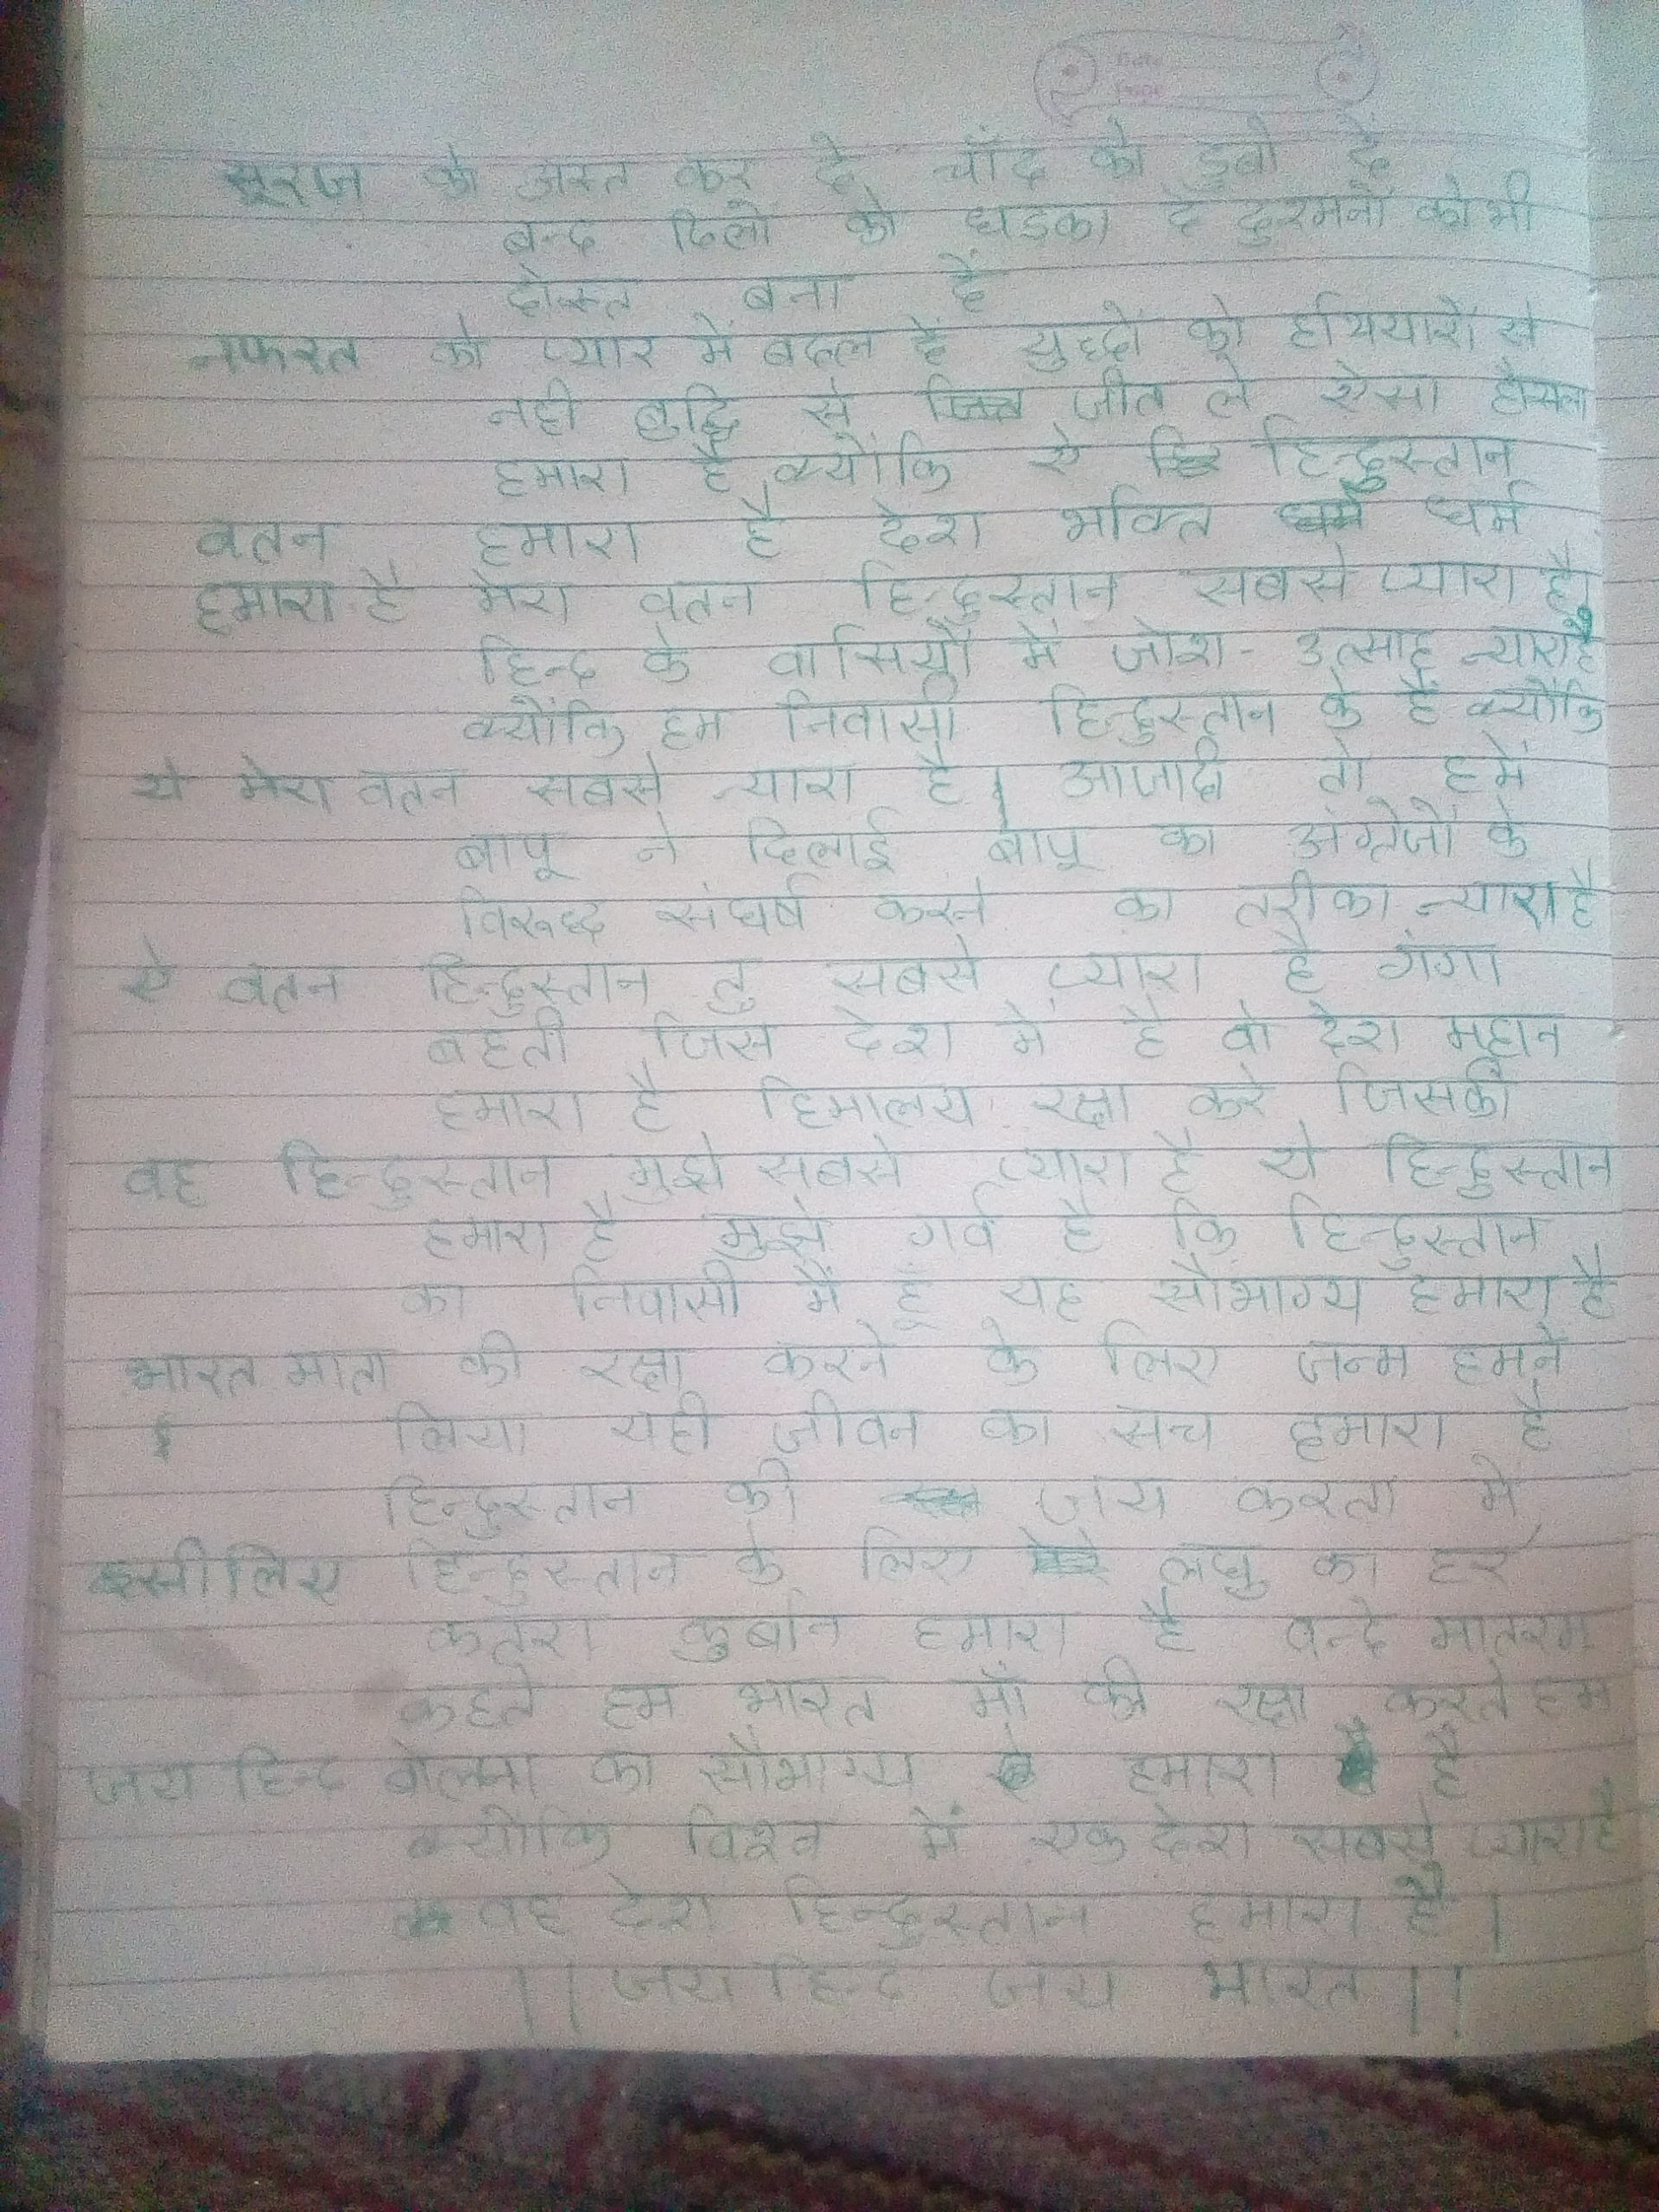 Date
Page
सूरज को अस्त कर दे चाँद को डुबो दे
बन्द दिलों को धडका दे दुश्मनों को भी
दोस्त बना दें
नफरत को प्यार में बदल दें युध्दों को हथियारों से
नही बुद्धि से जीत ले ऐसा हौसला
हमारा है क्योंकि ऐ हिन्दुस्तान
वतन हमारा है देश भक्ति धर्म
हमारा है मेरा वतन हिन्दुस्तान सबसे प्यारा है।
हिन्द के वासियों में जोश - उत्साह न्यारा है
क्योंकि हम निवासी हिन्दुस्तान के हैं क्योंकि
ये मेरा वतन सबसे न्यारा है। आजादी तो हमें
बापू ने दिलाई बापू का अंग्रेजों के
विरूध्द संघर्ष करने का तरीका न्यारा है
ऐ वतन हिन्दुस्तान तु सबसे प्यारा है गंगा
बहती जिस देश में है वो देश महान
हमारा है हिमालय रक्षा करे जिसकी
वह हिन्दुस्तान मुझे सबसे प्यारा है ये हिन्दुस्तान
हमारा है मुझे गर्व है कि हिन्दुस्तान
का निवासी मैं हूं यह सौभाग्य हमारा है
भारत माता की रक्षा करने के लिए जन्म हमने
लिया यही जीवन का सच हमारा है
हिन्दुस्तान की जय करता मे
इसीलिए हिन्दुस्तान के लिए लघु का हर
कतरा कुर्बान हमारा है वन्दे मातरम
कहते हम भारत माँ की रक्षा करते हम
जय हिन्द बोलना का सौभाग्य हमारा है
क्योंकि विश्व में एक देश सबसे प्यारा है
वह देश हिन्दुस्तान हमारा है।
।। जय हिन्द जय भारत ।।